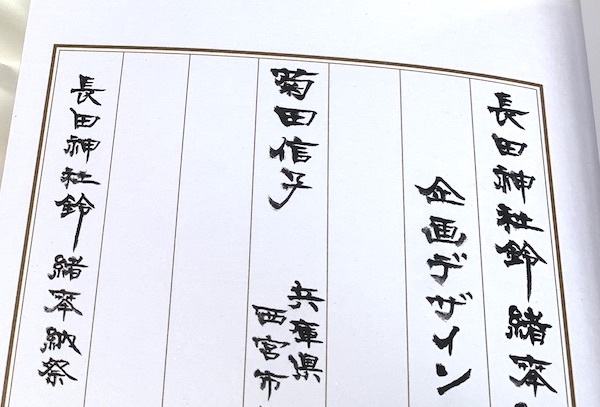 長田神社鈴緒奉
企画デザイン
菊田信子
兵庫県
西宮市
長田神社鈴緒奉納祭